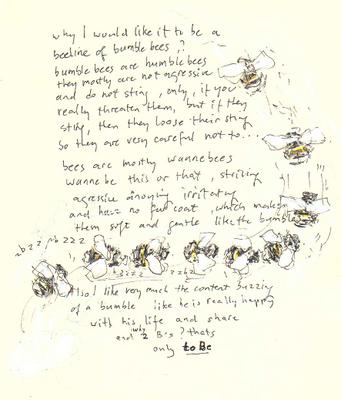 why I would like it to be a
beeline of bumble bees ,?
bumble bees are humble bees
they mostly are not agressive
and do not sting , only , if you
really threaten them, but if they
sting, then they loose their sting
so they are very careful not to...
bees are mostly wannebees
wanne be this or that , striving
agressive anoying irritating
and have no fur coat , which makes
them soft and gentle like the bumble
zbzz zbzzz
zzzz zzbz
Also I like very much the content buzzing
of a bumble like he is really happy
with his life and share
and why 2 B's ? thats
only to Be